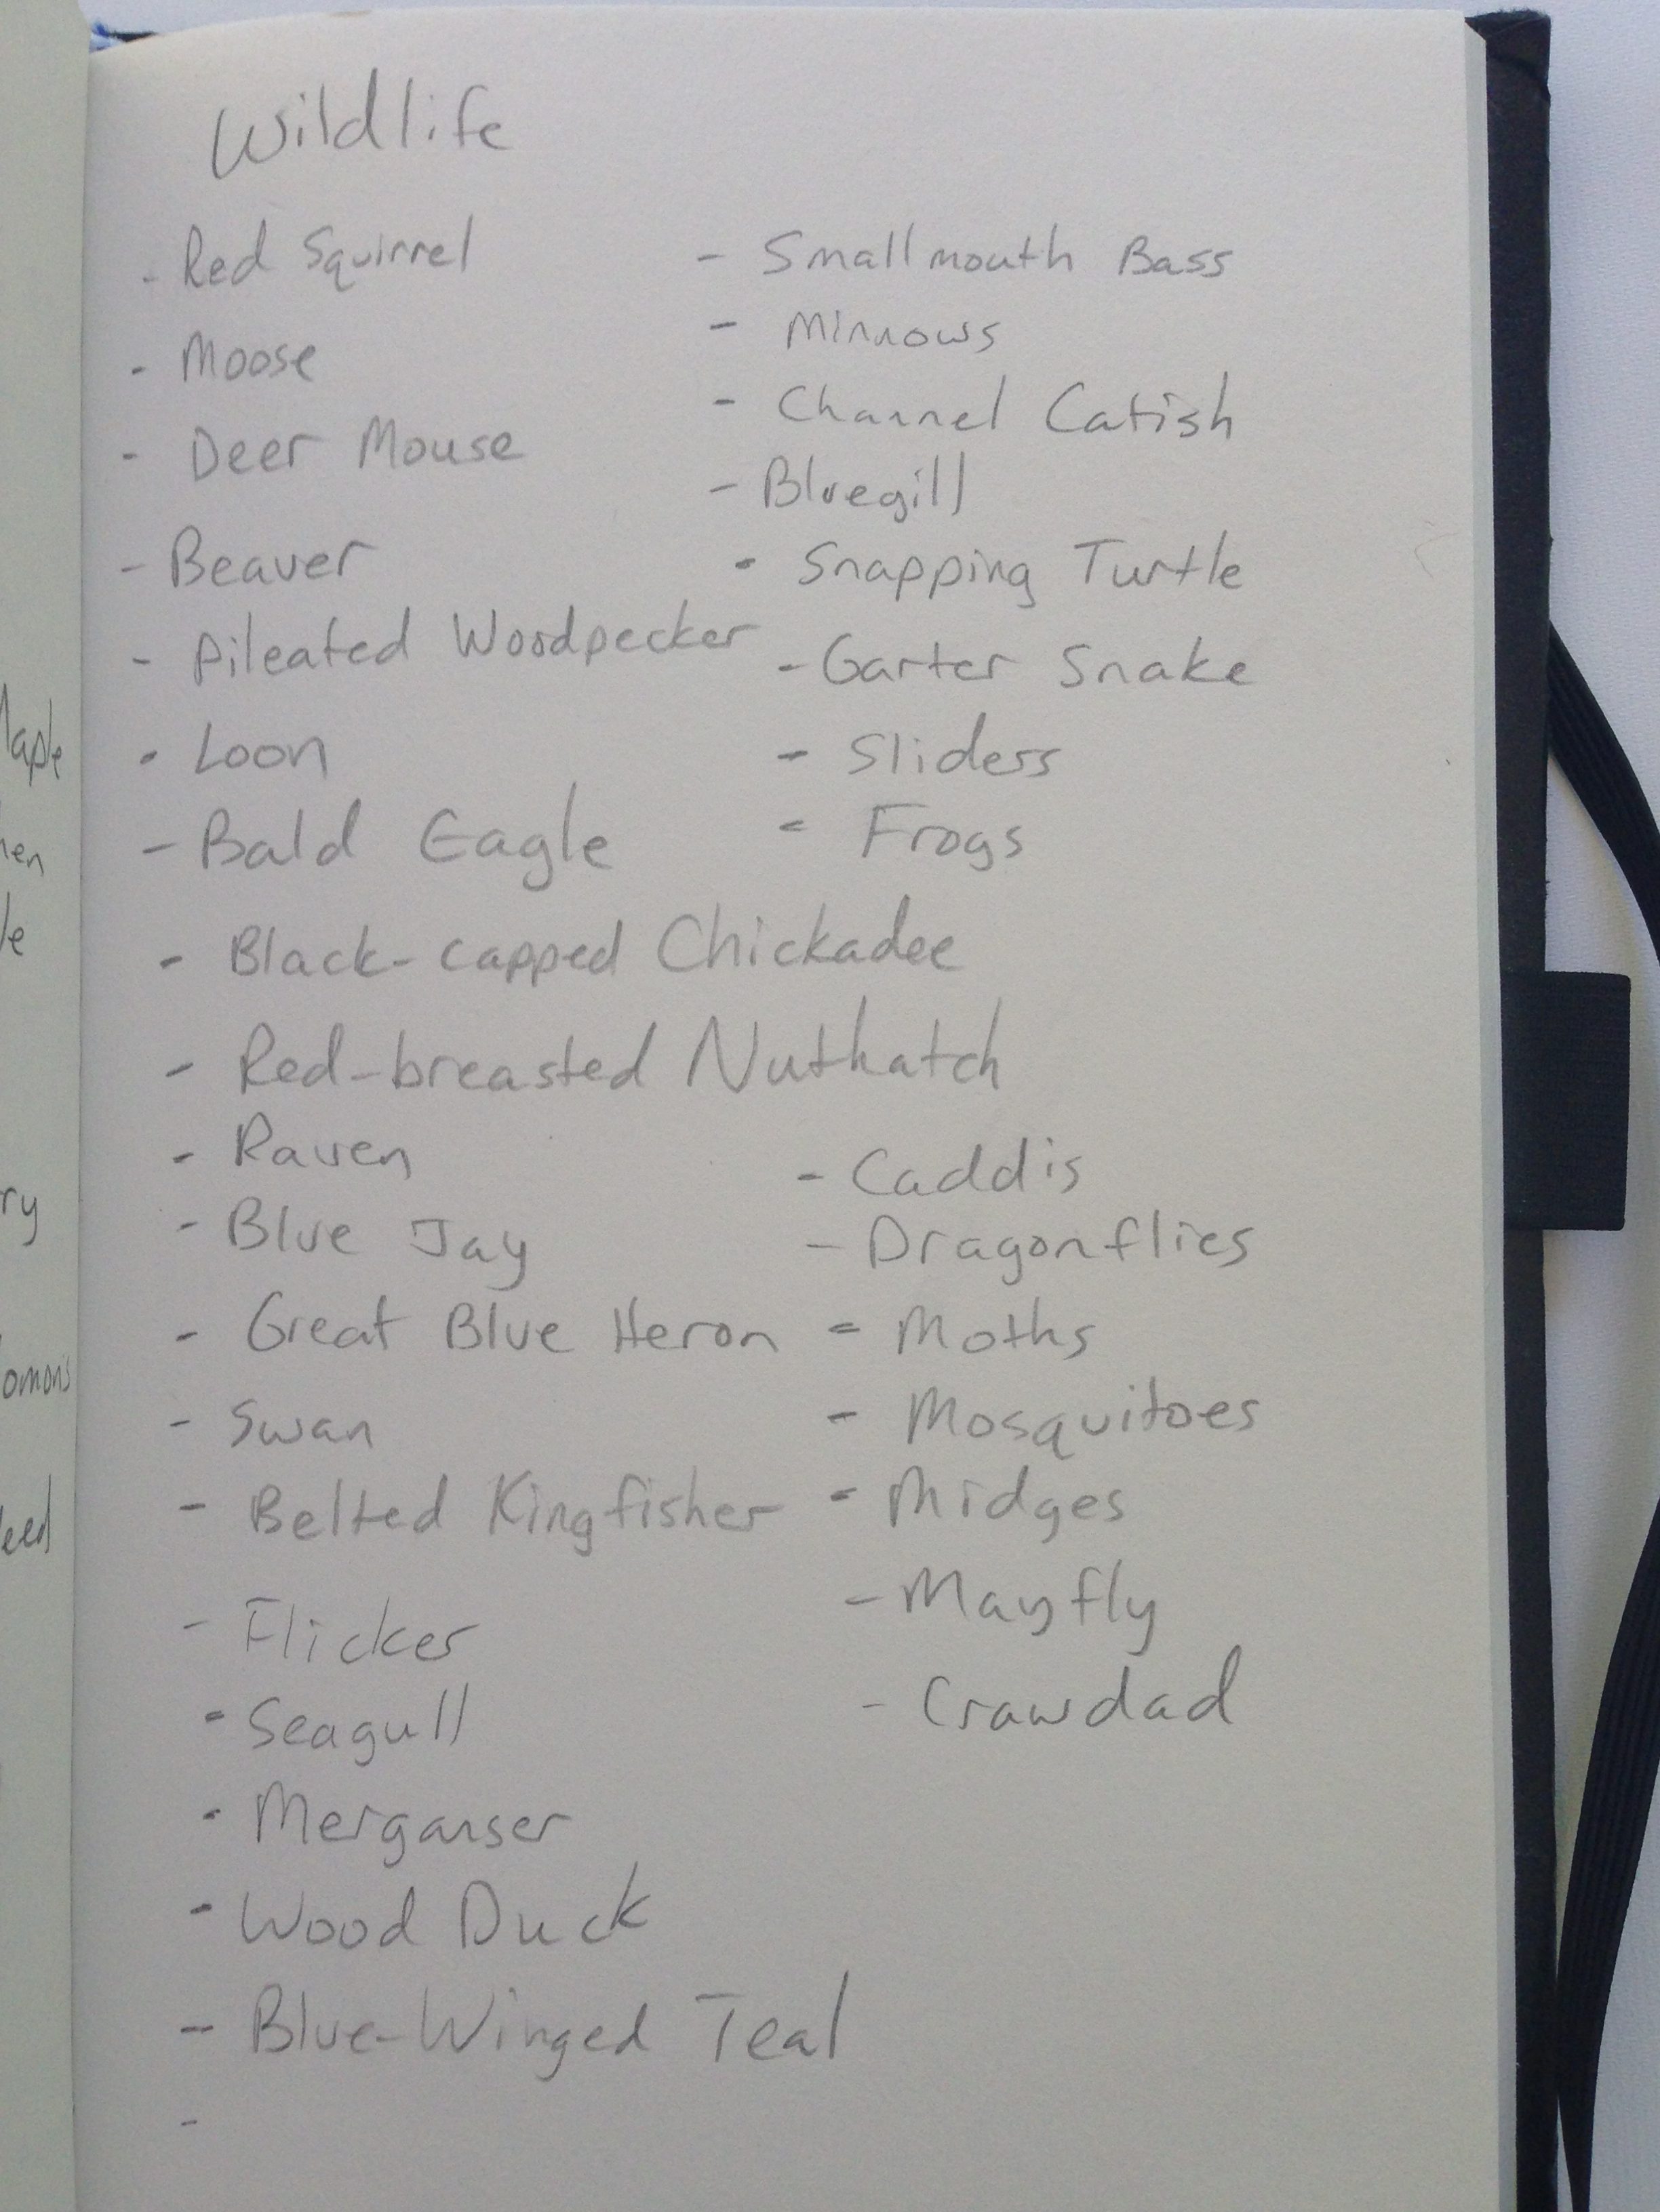 Wildlife
- Red Squirrel
- Moose
- Deer Mouse
- Beaver
- Pileated Woodpecker
- Loon
- Bald Eagle
- Black-capped Chickadee
- Red-breasted Nuthatch
- Raven
- Blue Jay
- Great Blue Heron
- Swan
- Belted Kingfisher
- Flicker
- Seagull
- Merganser
- Wood Duck
- Blue-Winged Teal
-
- Smallmouth Bass
- Minnows
- Channel Catish
- Bluegill
- Snapping Turtle
- Garter Snake
- Sliders
- Frogs
- Caddis
- Dragonflies
- Moths
- Mosquitoes
- Midges
- Mayfly
- Crawdad